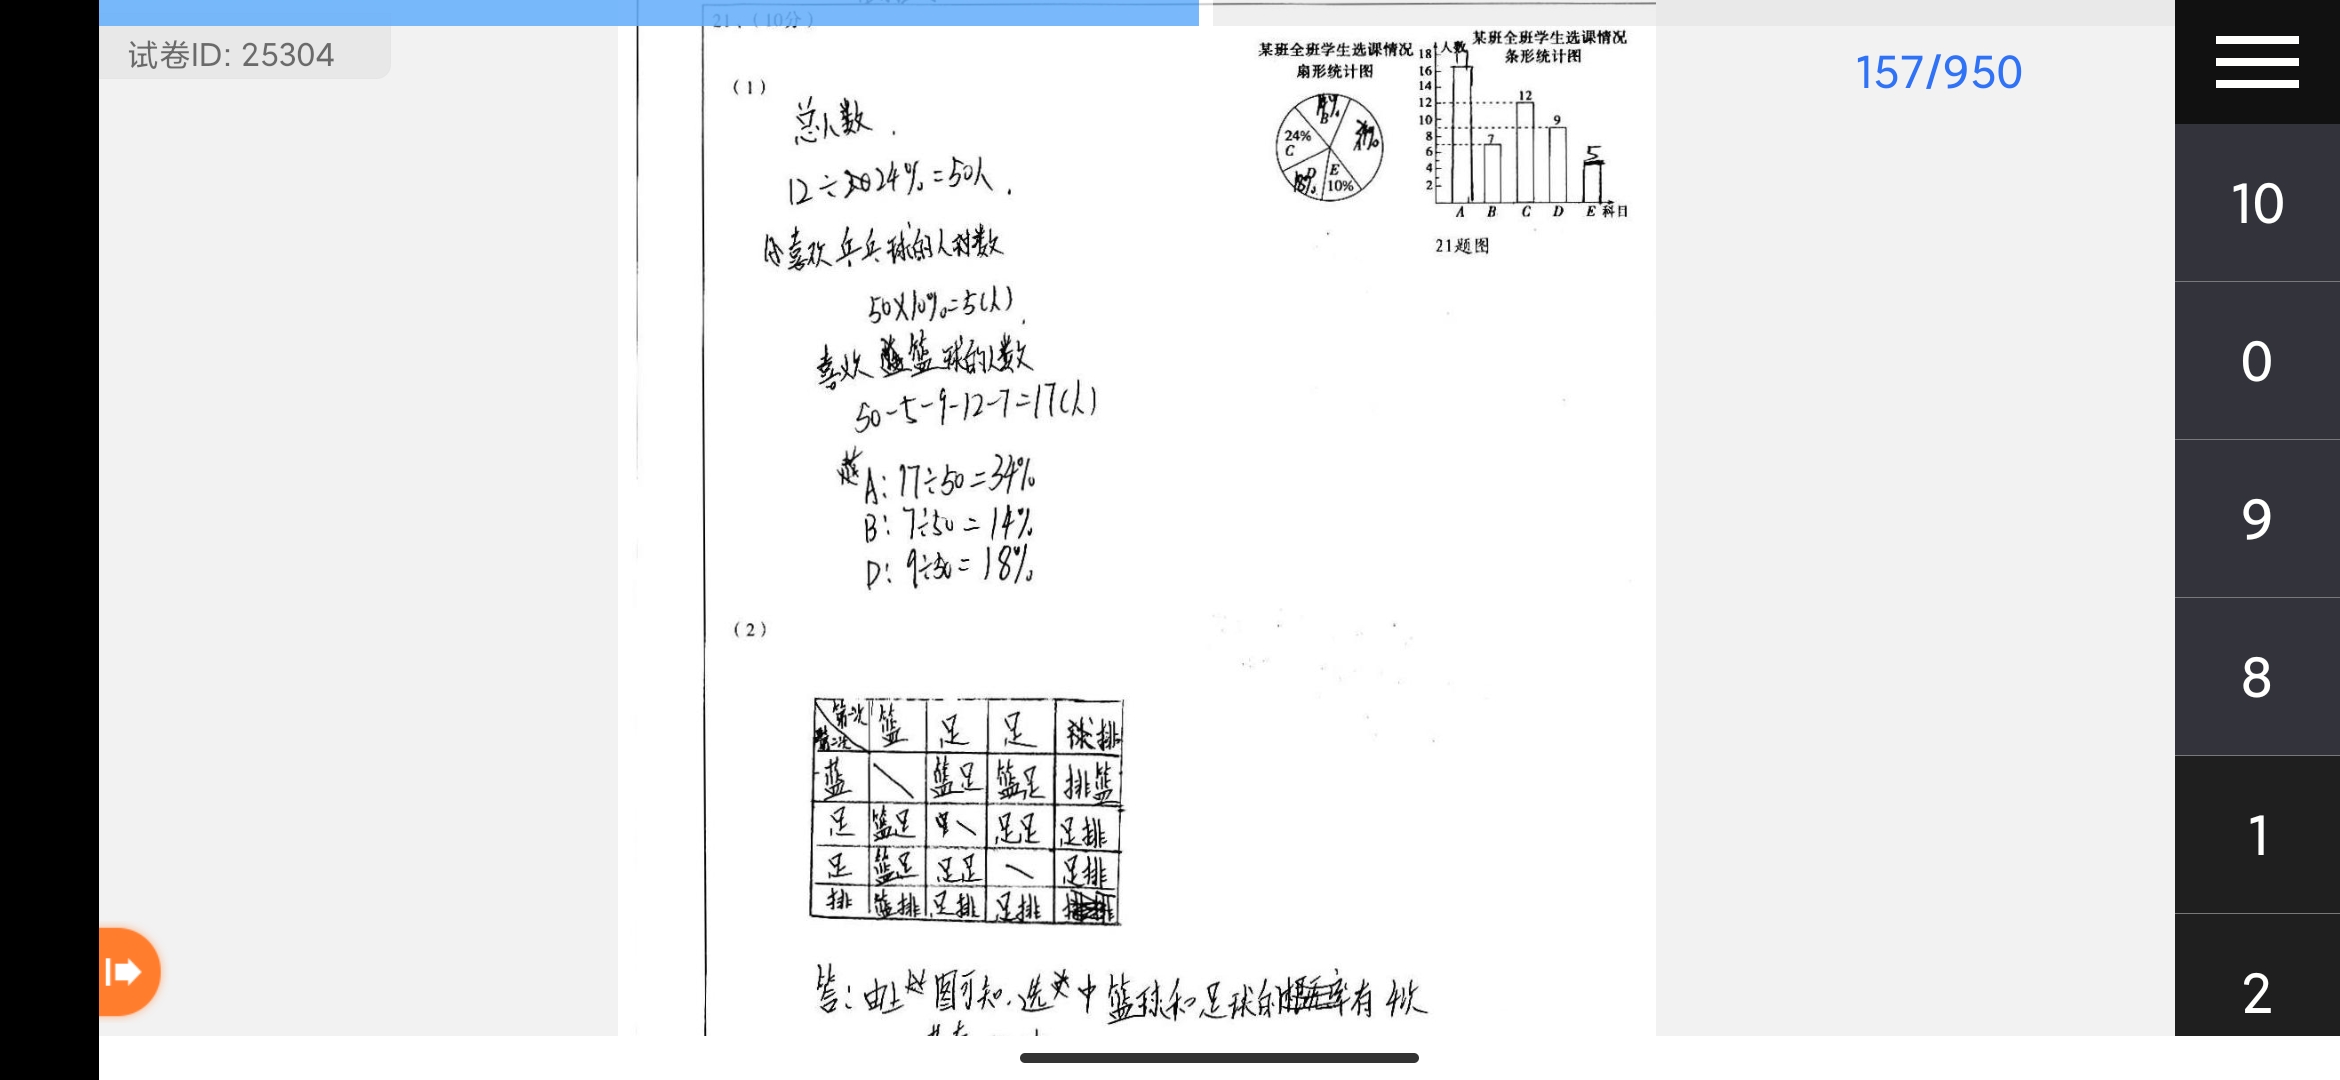 试卷ID: 25304
21、(10分)
157/950
(1)
总人数.
12÷24%=50人.
喜欢乒乓球的人数
50×10%=5(人).
喜欢篮球的人数
50-5-9-12-7=17(人)
A: 17÷50=34%
B: 7÷50=14%
D: 9÷50=18%
某班全班学生选课情况
扇形统计图
14%
B
34%
A
24%
C
18%
D
E
10%
某班全班学生选课情况
条形统计图
人数
18
16
14
12
10
8
6
4
2
17
7
12
9
5
A B C D E 科目
21题图
(2)
第一次 篮 足 足 排
第二次
蓝 \ 篮足 篮足 排篮
足 篮足 \ 足足 足排
足 篮足 足足 \ 足排
排 篮排 足排 足排
答:由上图可知.选中篮球和足球的有4次
10
0
9
8
1
2